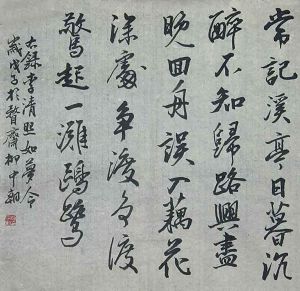 常記溪亭日暮沉
醉不知歸路興盡
晚回舟誤入藕花
深處爭渡爭渡
驚起一灘鷗鷺
右錄李清照如夢令
歲戊子於